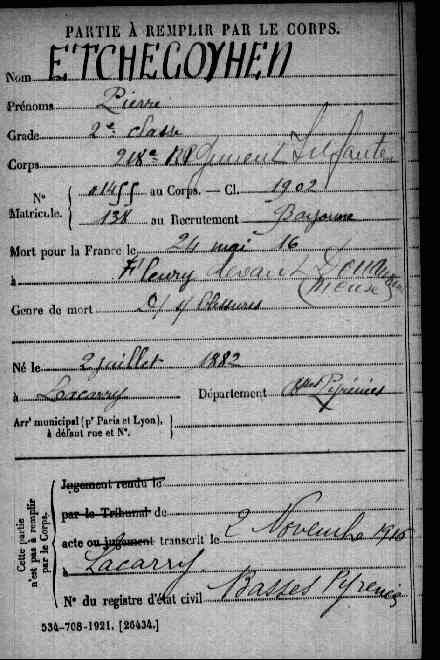 PARTIE À REMPLIR PAR LE CORPS.
Nom ETCHEGOYHEN
Prénoms Pierre
Grade 2e classe
Corps 218e Régiment Infanterie
N° Matricule. 01455 au Corps. — Cl. 1902
138 au Recrutement Bayonne
Mort pour la France le 24 mai 16
à Fleury devant Douaumont
(Meuse)
Genre de mort Blessures
Né le 2 juillet 1882
à Lacarry Département Bses Pyrénées
Arrt municipal (pr Paris et Lyon),
à défaut rue et N°.
Cette partie n'est pas à remplir par le Corps.
Jugement rendu le
par le Tribunal de
acte ou jugement transcrit le 2 Novembre 1916
à Lacarry
N° du registre d'état civil Basses Pyrénées
534-708-1921. [26434.]